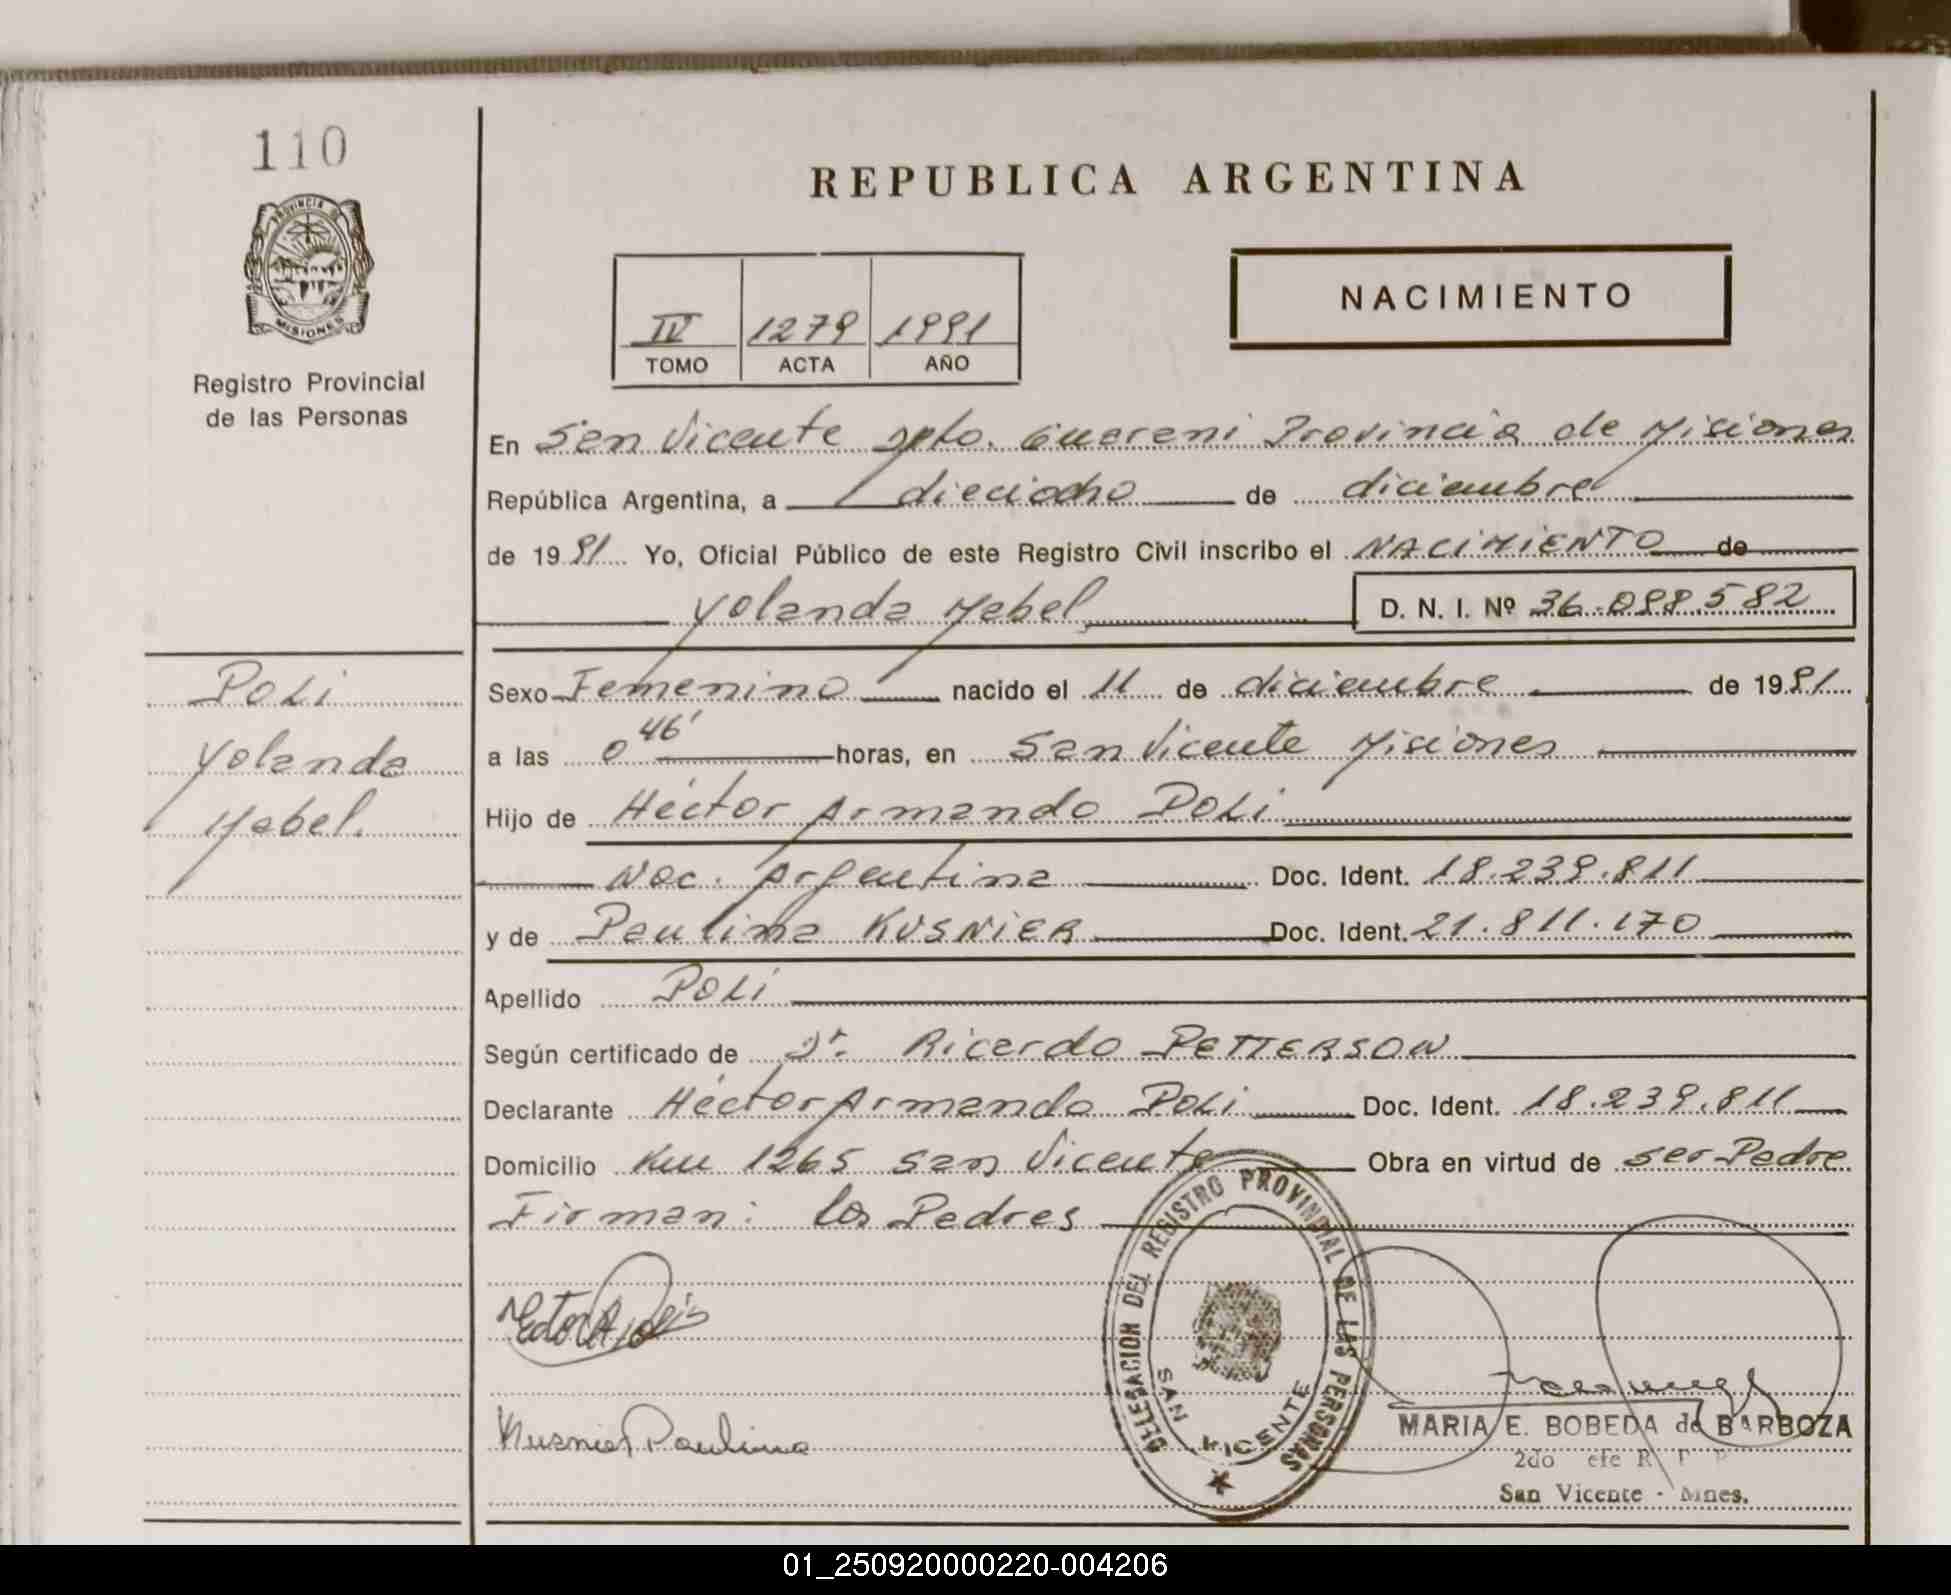 110
PROVINCIA DE
MISIONES
Registro Provincial
de las Personas
REPUBLICA ARGENTINA
NACIMIENTO
IV 1279 1991
TOMO ACTA AÑO
En San Vicente Dpto. Guarani Provincia de Misiones
República Argentina, a dieciocho de diciembre
de 1991 Yo, Oficial Público de este Registro Civil inscribo el NACIMIENTO de
Yolanda Mabel D. N. I. Nº 36.098.582
Poli
Yolanda
Mabel.
Sexo Femenino nacido el 11 de diciembre de 1991
a las 0 46' horas, en San Vicente Misiones
Hijo de Héctor Armando Poli
Nac. Argentina Doc. Ident. 18.239.811
y de Paulina KUSNIER Doc. Ident. 21.811.170
Apellido Poli
Según certificado de Dr. Ricardo PETTERSON
Declarante Héctor Armando Poli Doc. Ident. 18.239.811
Domicilio Km 1265 San Vicente Obra en virtud de ser Padre
Firman: los Padres
DELEGACION DEL REGISTRO PROVINCIAL DE LAS PERSONAS
SAN VICENTE
Kusnier Paulina
MARIA E. BOBEDA de BARBOZA
2do efe R P P
San Vicente - Mnes.
01_250920000220-004206